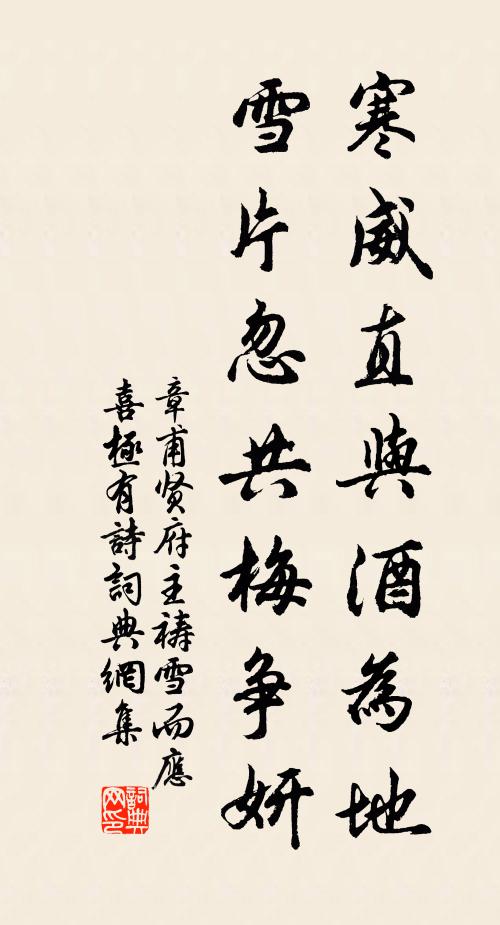 寒威直與酒為地
雪片忽共梅争妍
章甫贤府主禱雪而應
喜極有詩詞典網集
詞典网印